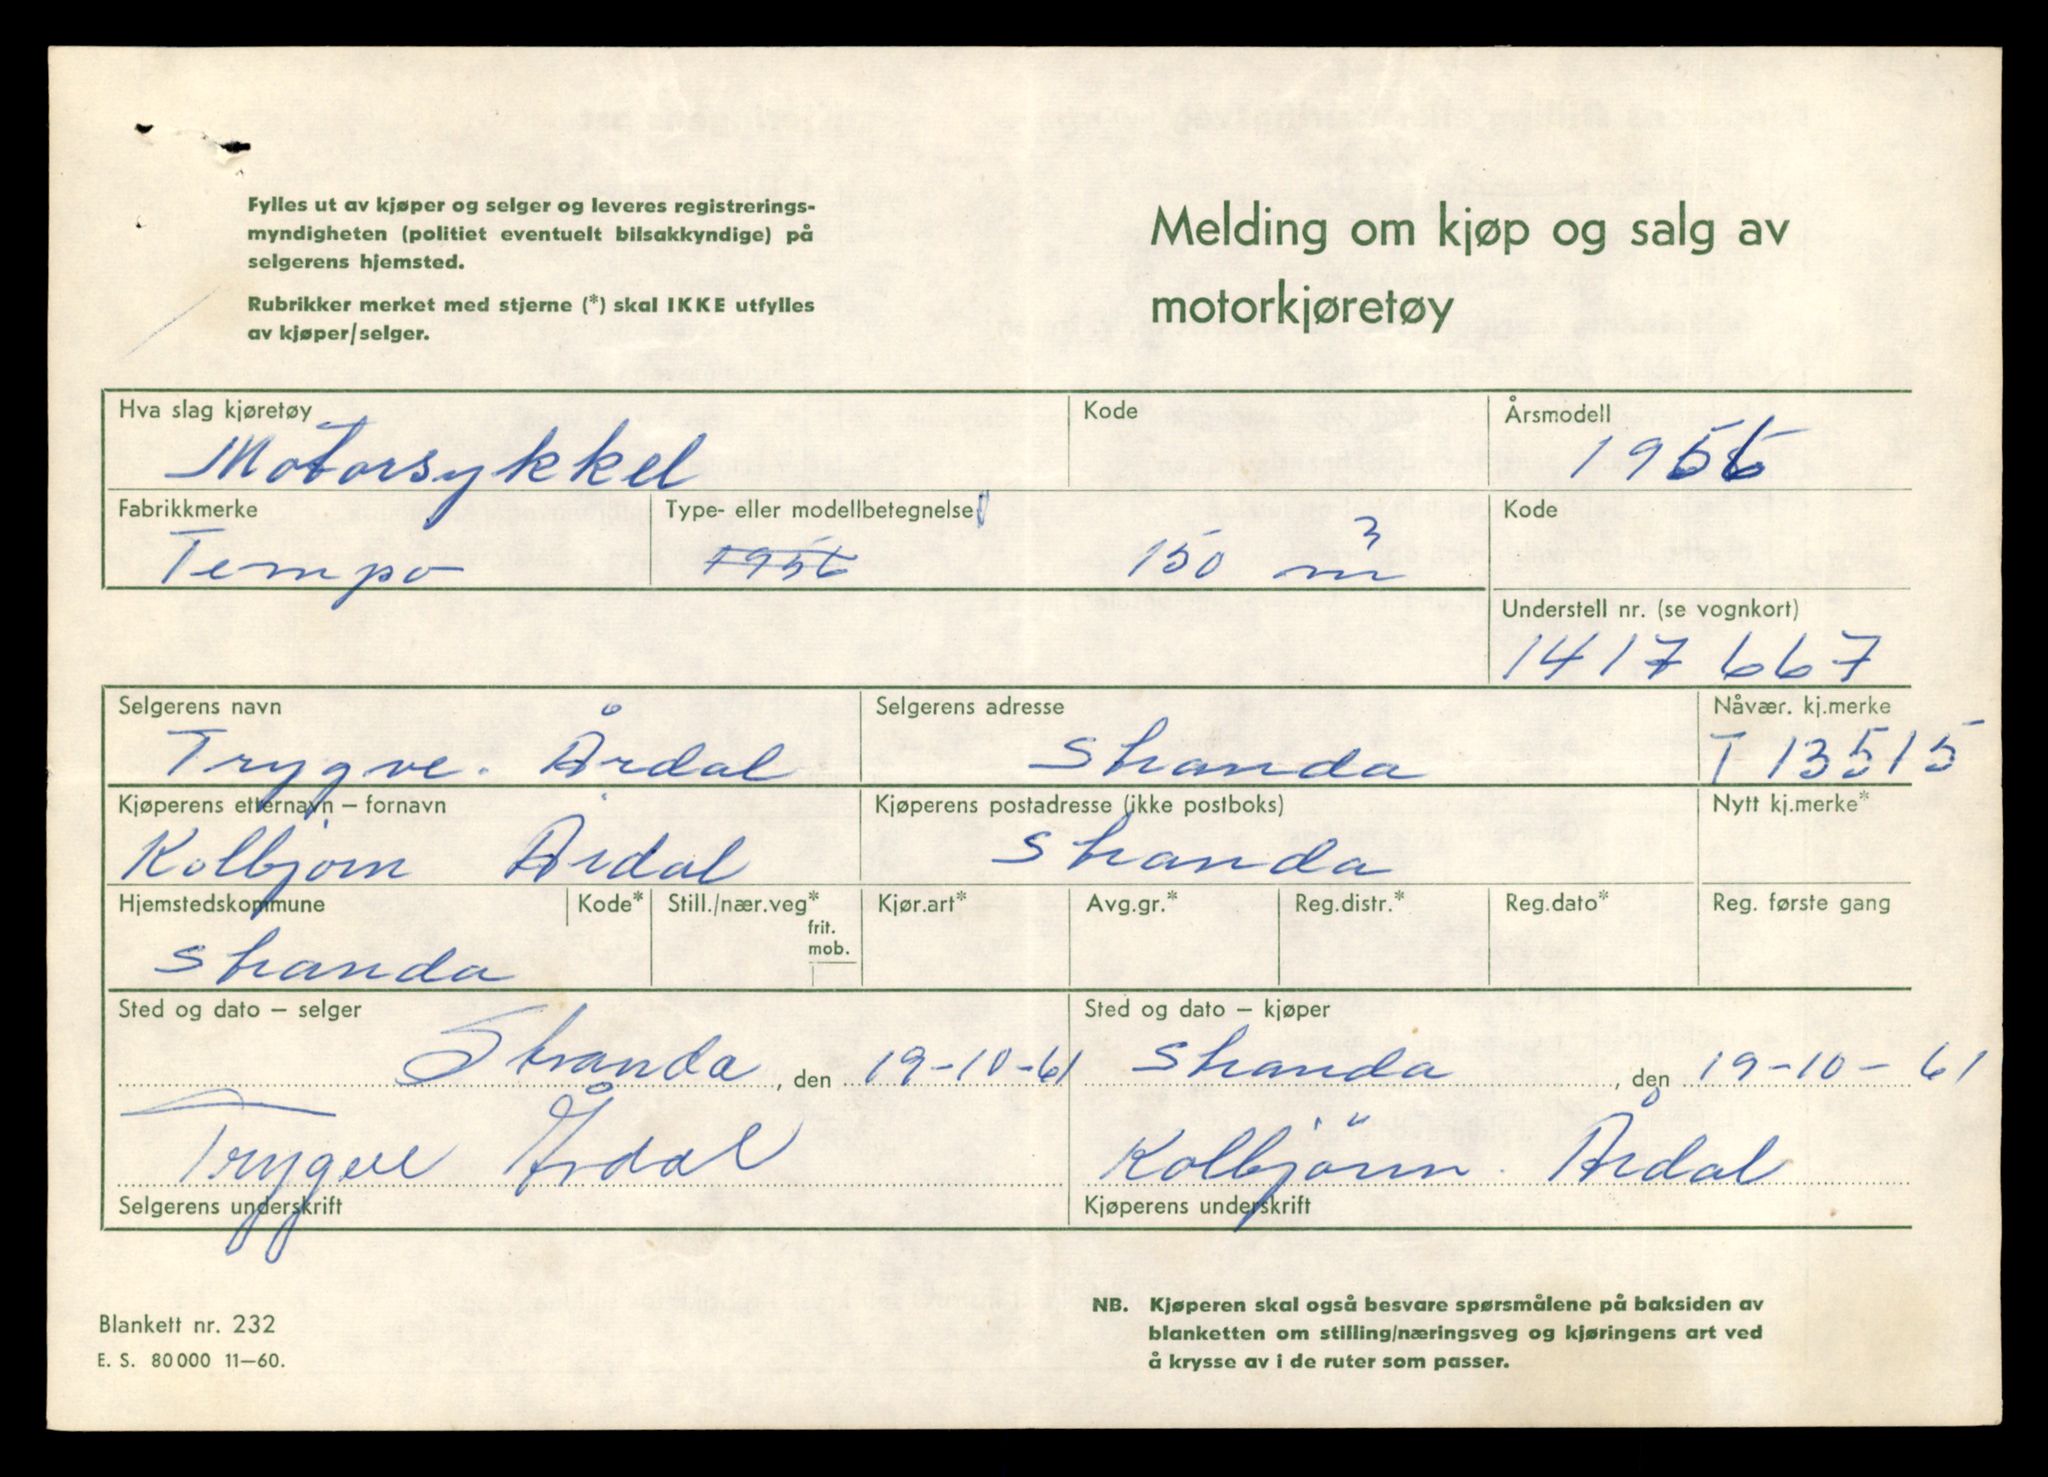 Fylles ut av kjøper og selger og leveres registrerings-
myndigheten (politiet eventuelt bilsakkyndige) på
selgerens hjemsted.
Rubrikker merket med stjerne (*) skal IKKE utfylles
av kjøper/selger.
Melding om kjøp og salg av
motorkjøretøy
Hva slag kjøretøy Kode Årsmodell
Motorsykkel 1956
Fabrikkmerke Type- eller modellbetegnelse Kode
Tempo 1956 150 m³
Understell nr. (se vognkort)
1417667
Selgerens navn Selgerens adresse Nåvær. kj.merke
Trygve. Årdal Stranda T 13515
Kjøperens etternavn – fornavn Kjøperens postadresse (ikke postboks) Nytt kj.merke*
Kolbjørn Årdal Stranda
Hjemstedskommune Kode* Still./nær.veg* frit. mob. Kjør.art* Avg.gr.* Reg.distr.* Reg.dato* Reg. første gang
Stranda
Sted og dato – selger Sted og dato – kjøper
Stranda, den 19-10-61 Stranda, den 19-10-61
Trygve Årdal Kolbjörn. Årdal
Selgerens underskrift Kjøperens underskrift
Blankett nr. 232
E. S. 80000 11–60.
NB. Kjøperen skal også besvare spørsmålene på baksiden av
blanketten om stilling/næringsveg og kjøringens art ved
å krysse av i de ruter som passer.